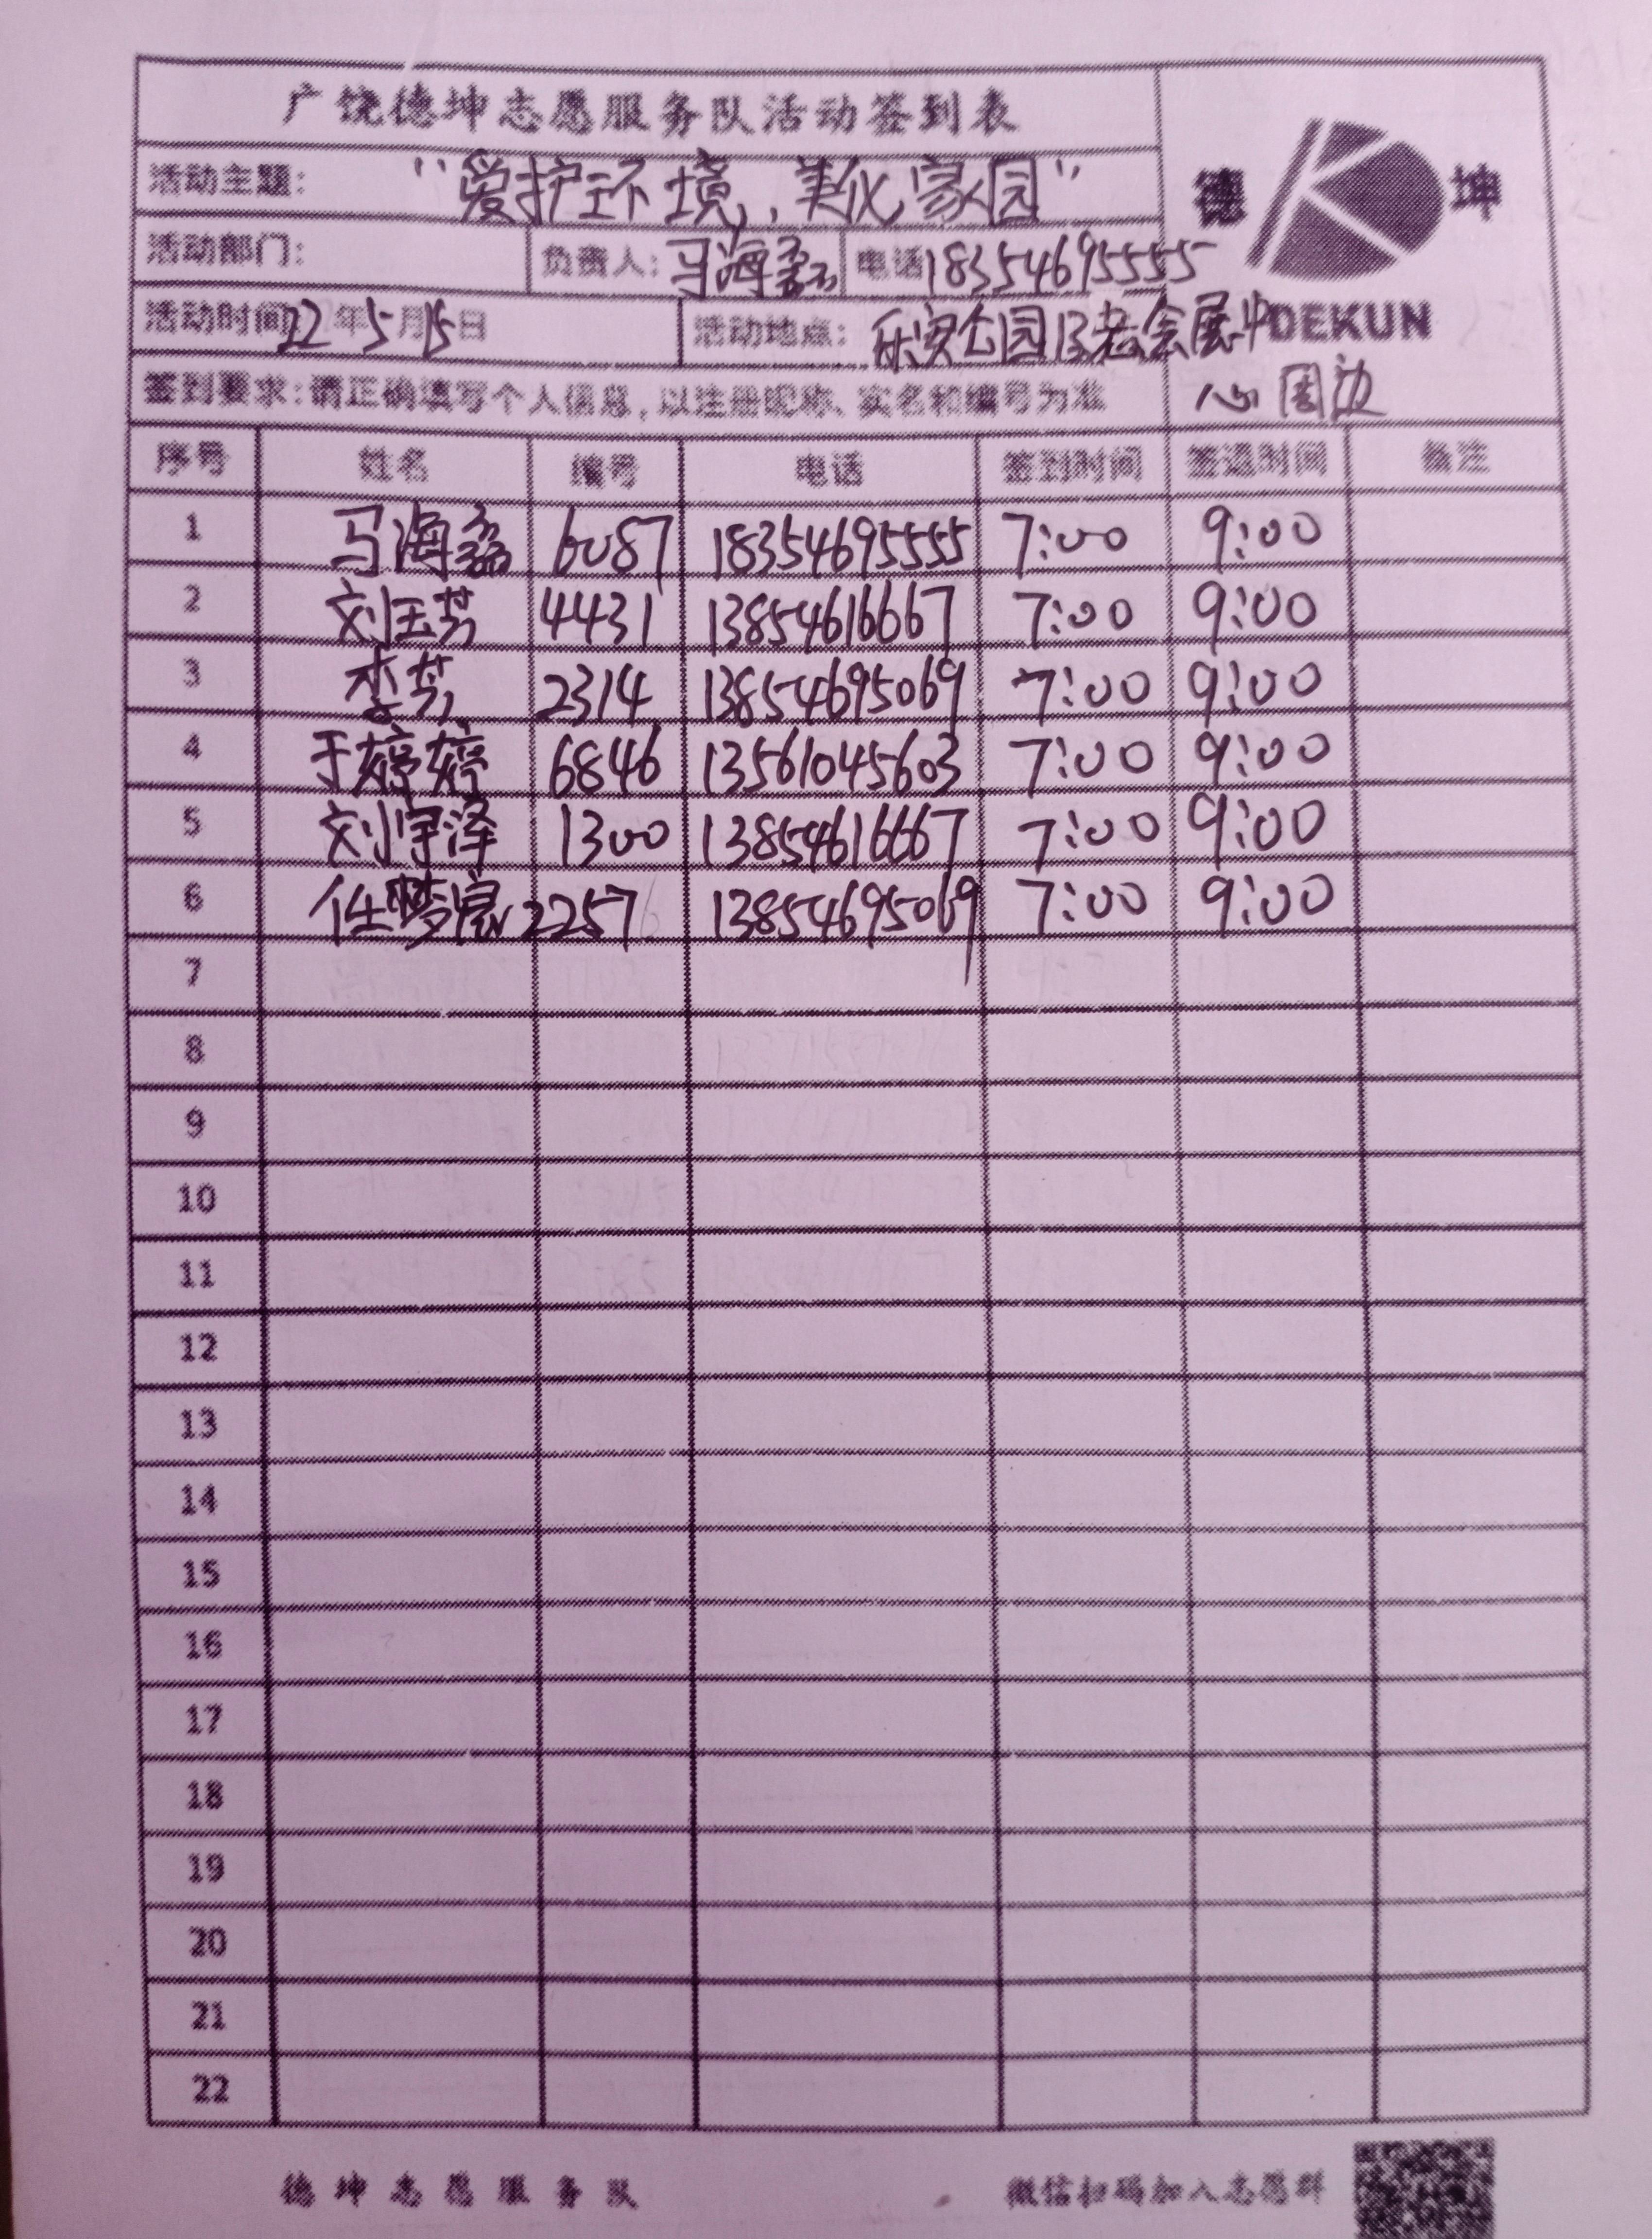 广饶德坤志愿服务队活动签到表
活动主题: "爱护环境,美化家园"
德 坤
活动部门: 负责人: 马海 电话 18354695555
活动时间 22年5月15日 活动地点: 乐安公园及老会展中
DEKUN
心周边
签到要求:请正确填写个人信息,以注册昵称、实名和编号为准
序号 姓名 编号 电话 签到时间 签退时间 备注
1 马海 6087 18354695555 7:00 9:00
2 刘玉芳 4431 13854616667 7:00 9:00
3 李芳 2314 13854695069 7:00 9:00
4 于婷婷 6846 13561045603 7:00 9:00
5 刘宇泽 1300 13854616667 7:00 9:00
6 任 2257 13854695069 7:00 9:00
7
8
9
10
11
12
13
14
15
16
17
18
19
20
21
22
德坤志愿服务队 微信扫码加入志愿群